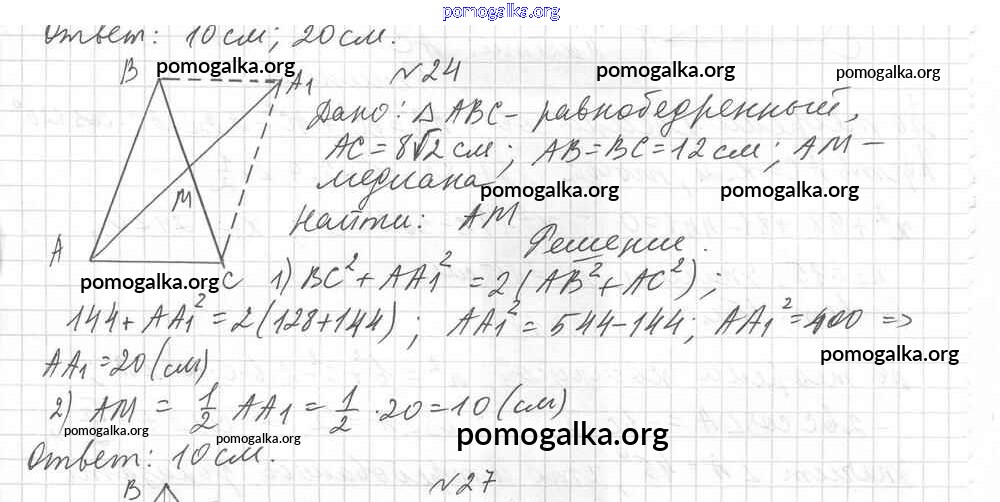 pomogalka.org
Ответ: 10см; 20см.
B pomogalka.org A1 №24 pomogalka.org pomogalka.org
Дано: △ABC - равнобедренный,
AC = 8√2 см; AB = BC = 12 см; AM -
медиана pomogalka.org pomogalka.org
M
Найти: AM
Решение.
A C
pomogalka.org
1) BC² + AA1² = 2(AB² + AC²);
144 + AA1² = 2(128 + 144); AA1² = 544 - 144; AA1² = 400 =>
pomogalka.org
AA1 = 20 (см)
2) AM = 1/2 AA1 = 1/2 · 20 = 10 (см)
pomogalka.org pomogalka.org pomogalka.org
Ответ: 10 см.
B №27